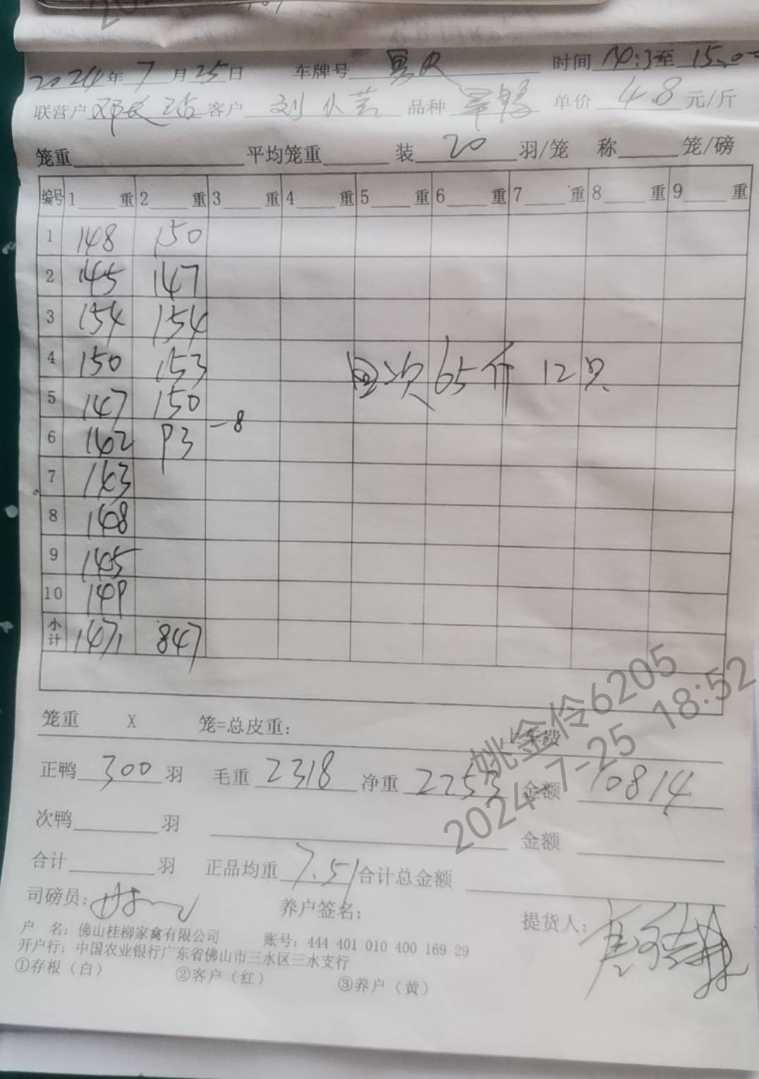 2024年7月25日 车牌号 时间 14:3至15:00
联营户 客户 刘 品种 单价 4.8 元/斤
笼重 平均笼重 装 20 羽/笼 称 笼/磅
编号 1 重 2 重 3 重 4 重 5 重 6 重 7 重 8 重 9 重
1 148 150
2 145 147
3 154 154
4 150 153
5 147 150
6 142 93 -8
7 143
8 148
9 145
10 149
小计 1471 847
次65斤 12只
笼重 X 笼=总皮重:
正鸭 300 羽 毛重 2318 净重 2253 金额 10814
次鸭 羽 金额
合计 羽 正品均重 7.51 合计总金额
司磅员: 养户签名: 提货人:
户 名:佛山桂柳家禽有限公司 账号:444 401 010 400 169 29
开户行:中国农业银行广东省佛山市三水区三水支行
①存根(白) ②客户(红) ③养户(黄)
姚金伶6205
2024-7-25 18:52